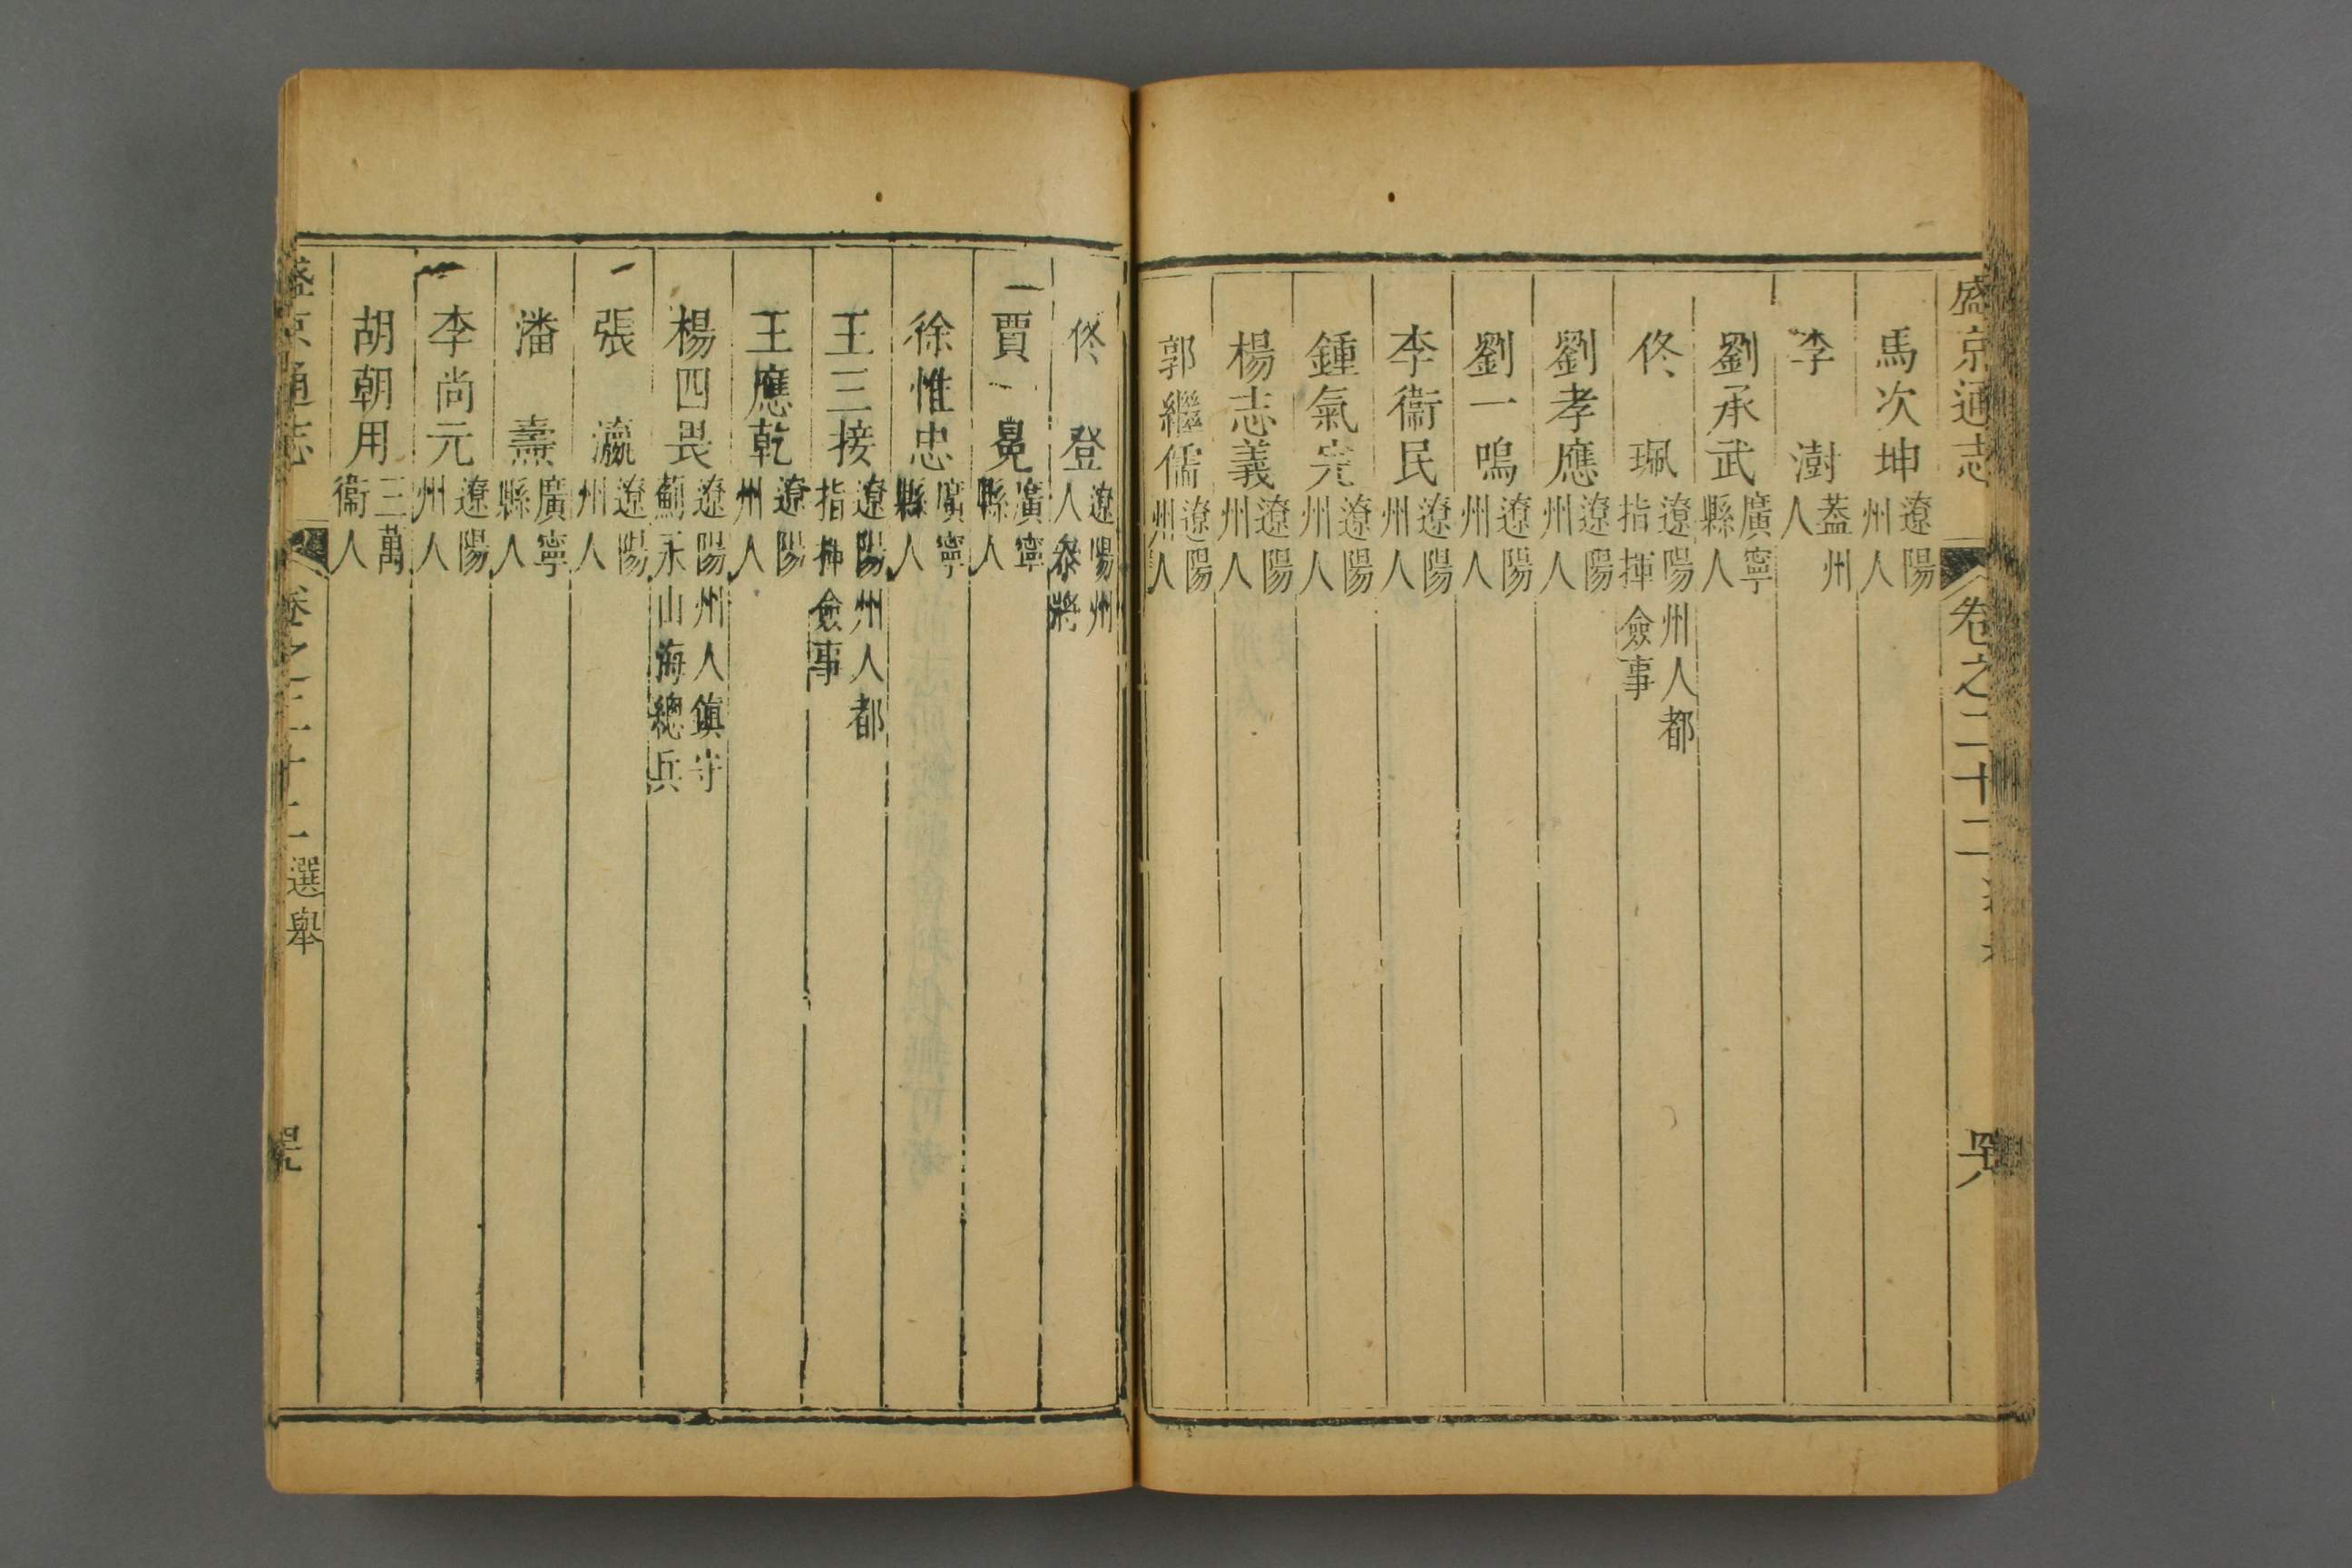 盛京通志 卷之二十二
馬次坤 遼陽州人
李澍 蓋州人
劉承武 廣寧縣人
佟珮 遼陽州人都指揮僉事
劉孝應 遼陽州人
劉一鳴 遼陽州人
李衞民 遼陽州人
鍾氣完 遼陽州人
楊志義 遼陽州人
郭繼儒 遼陽州人
佟登 遼陽州人叅將
賈冕 廣寧縣人
徐惟忠 廣寧縣人
王三接 遼陽州人都指揮僉事
王應乾 遼陽州人
楊四畏 遼陽州人鎮守薊永山海總兵
張瀛 遼陽州人
潘燾 廣寧縣人
李尚元 遼陽州人
胡朝用 三萬衞人
盛京通志 卷之二十二 選舉